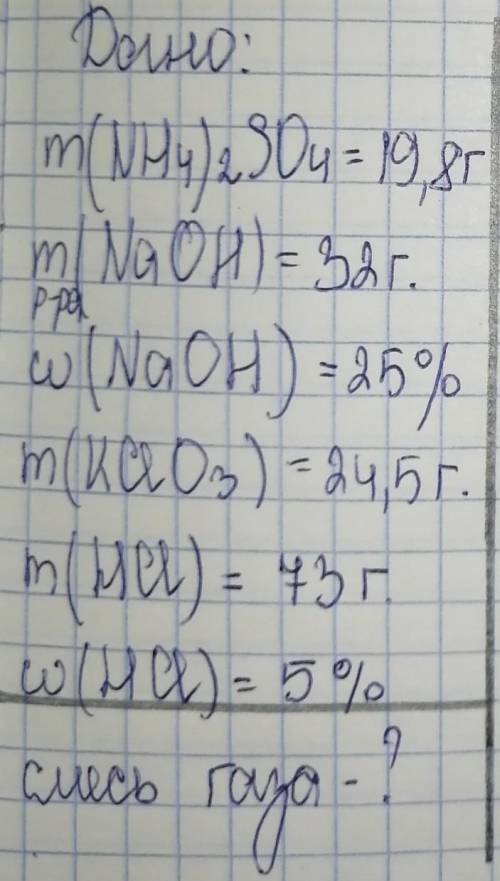 Дано:
m(NH4)2SO4 = 19,8г
m(NaOH) = 32г.
р-ра
w(NaOH) = 25%
m(KClO3) = 24,5г.
m(HCl) = 73г.
w(HCl) = 5%
смесь газа - ?